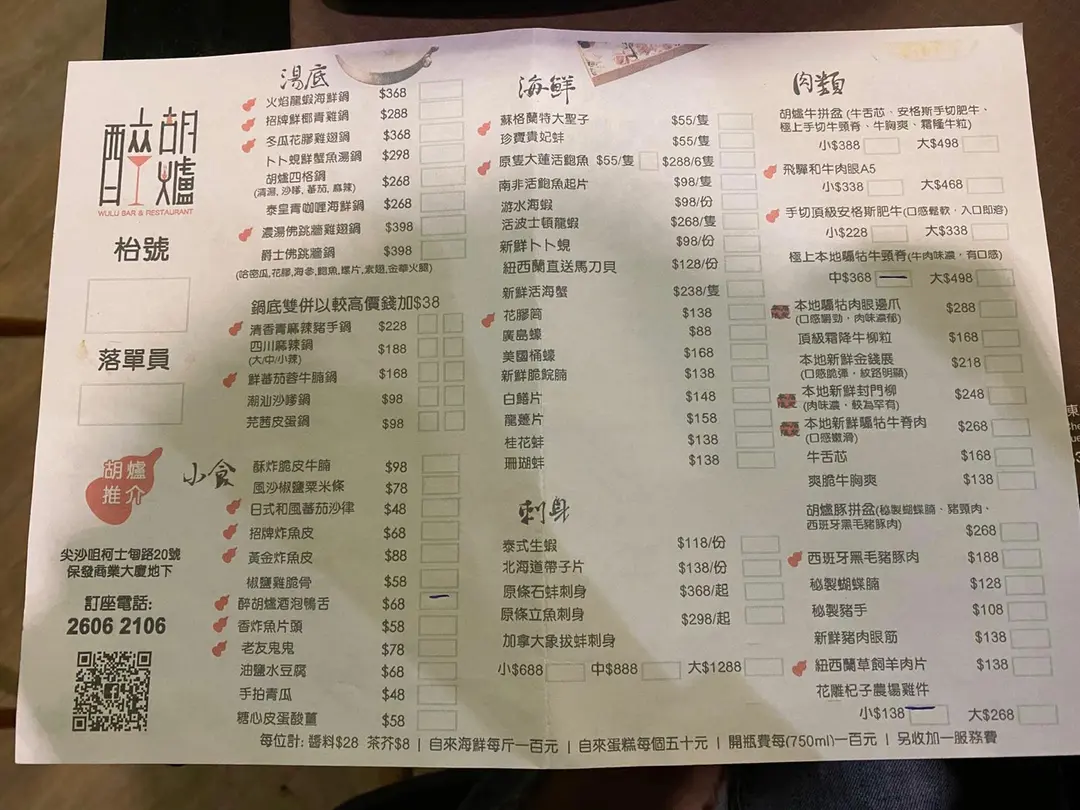 醉胡爐
WULU BAR & RESTAURANT
枱號
落單員
胡爐
推介
尖沙咀柯士甸路20號
保發商業大廈地下
訂座電話:
2606 2106
湯底
火焰龍蝦海鮮鍋 $368
招牌鮮椰青雞鍋 $288
冬瓜花膠雞翅鍋 $368
卜卜蜆鮮蟹魚湯鍋 $298
胡爐四格鍋 $268
(清湯, 沙嗲, 蕃茄, 麻辣)
泰皇青咖喱海鮮鍋 $268
濃湯佛跳牆雞翅鍋 $398
爵士佛跳牆鍋 $398
(哈密瓜,花膠,海參,鮑魚,螺片,素翅,金華火腿)
鍋底雙併以較高價錢加$38
清香青麻辣豬手鍋 $228
四川麻辣鍋 $188
(大/中/小辣)
鮮蕃茄蓉牛腩鍋 $168
潮汕沙嗲鍋 $98
芫茜皮蛋鍋 $98
小食
酥炸脆皮牛腩 $98
風沙椒鹽粟米條 $78
日式和風蕃茄沙律 $48
招牌炸魚皮 $68
黃金炸魚皮 $88
椒鹽雞脆骨 $58
醉胡爐酒泡鴨舌 $68
香炸魚片頭 $58
老友鬼鬼 $78
油鹽水豆腐 $68
手拍青瓜 $48
糖心皮蛋酸薑 $58
海鮮
蘇格蘭特大聖子 $55/隻
珍寶貴妃蚌 $55/隻
原隻大蓮活鮑魚 $55/隻 $288/6隻
南非活鮑魚起片 $98/隻
游水海蝦 $98/份
活波士頓龍蝦 $268/隻
新鮮卜卜蜆 $98/份
紐西蘭直送馬刀貝 $128/份
新鮮活海蟹 $238/隻
花膠筒 $138
廣島蠔 $88
美國桶蠔 $168
新鮮脆鯇腩 $138
白鱔片 $148
龍躉片 $158
桂花蚌 $138
珊瑚蚌 $138
刺身
泰式生蝦 $118/份
北海道帶子片 $138/份
原條石蚌刺身 $368/起
原條立魚刺身 $298/起
加拿大象拔蚌刺身
小$688 中$888 大$1288
肉類
胡爐牛拼盆 (牛舌芯、安格斯手切肥牛、
極上手切牛頸脊、牛胸爽、霜隆牛粒)
小$388 大$498
飛驒和牛肉眼A5
小$338 大$468
手切頂級安格斯肥牛(口感鬆軟，入口即溶)
小$228 大$338
極上本地騸牯牛頸脊(牛肉味濃，有口感)
中$368 大$498
本地騸牯肉眼邊爪 $288
(口感嚼勁，肉味濃郁)
頂級霜降牛柳粒 $168
本地新鮮金錢展 $218
(口感脆彈，紋路明顯)
本地新鮮封門柳 $248
(肉味濃，較為罕有)
本地新鮮騸牯牛脊肉 $268
(口感嫩滑)
牛舌芯 $168
爽脆牛胸爽 $138
胡爐豚拼盆(秘製蝴蝶腩、豬頸肉、
西班牙黑毛豬豚肉) $268
西班牙黑毛豬豚肉 $188
秘製蝴蝶腩 $128
秘製豬手 $108
新鮮豬肉眼筋 $138
紐西蘭草飼羊肉片 $138
花雕杞子農場雞件
小$138 大$268
每位計: 醬料$28 茶芥$8 | 自來海鮮每斤一百元 | 自來蛋糕每個五十元 | 開瓶費每(750ml)一百元 | 另收加一服務費